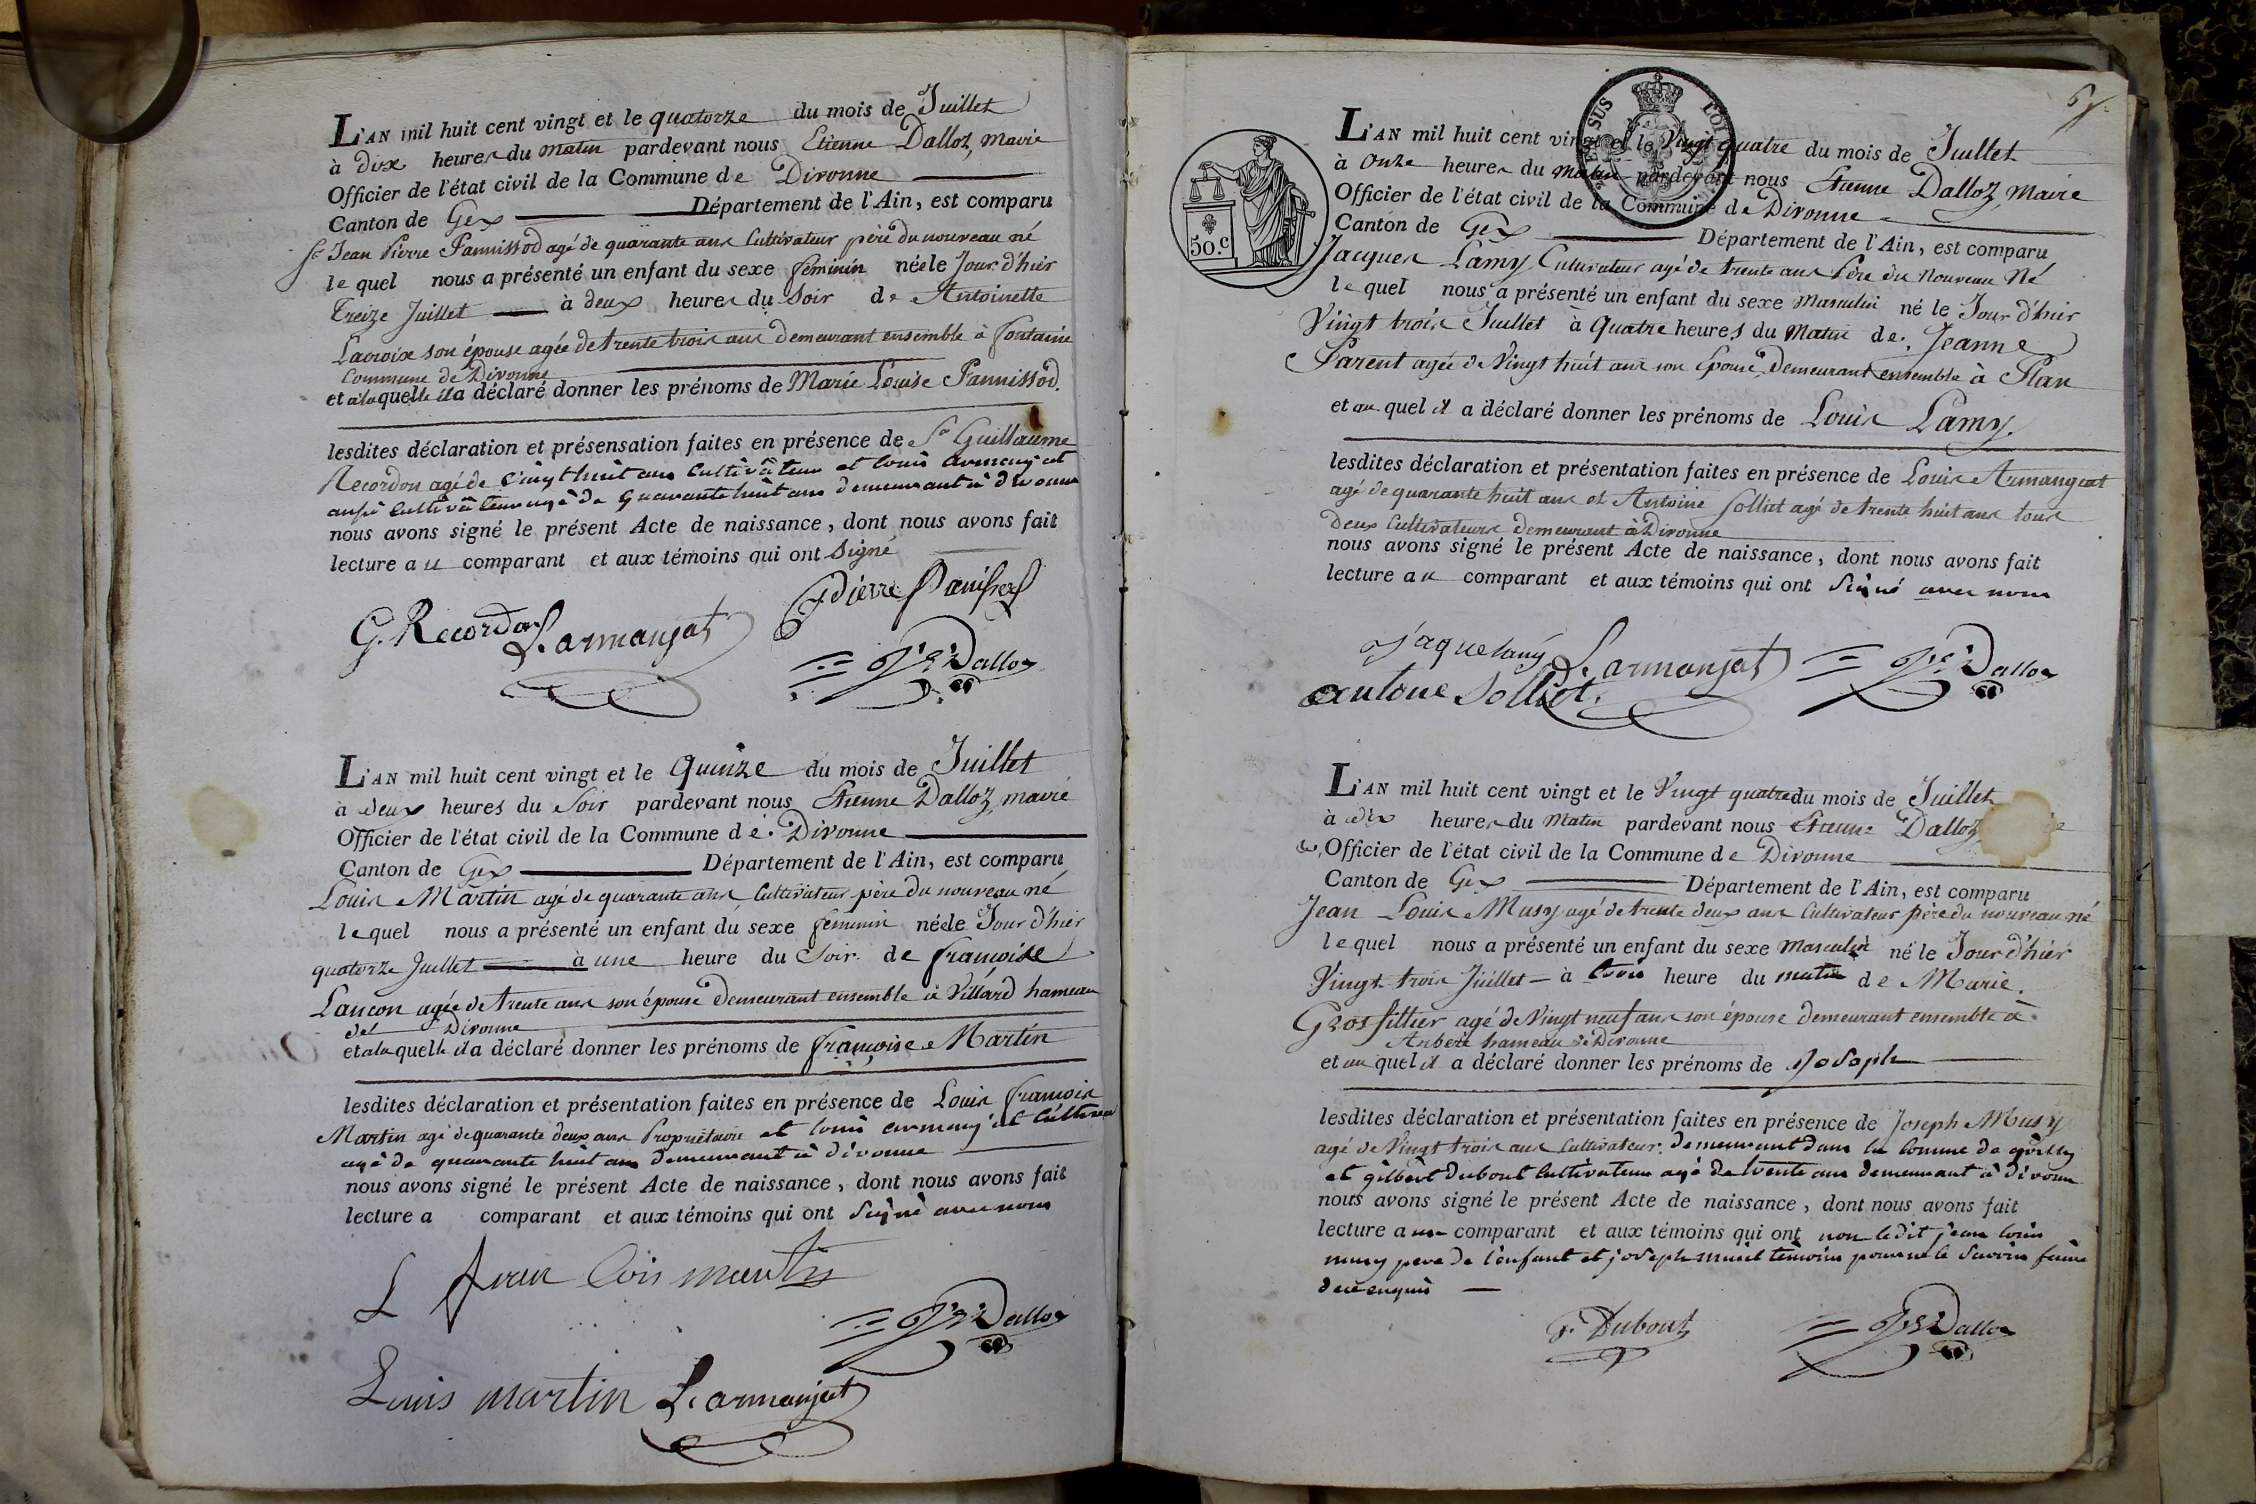 L'AN mil huit cent vingt et le quatorze du mois de Juillet
à dix heures du matin pardevant nous Etienne Dalloz, maire
Officier de l'état civil de la Commune de Divonne
Canton de Gex Département de l'Ain, est comparu
Sr Jean Pierre Pannissod agé de quarante ans Cultivateur père du nouveau né
lequel nous a présenté un enfant du sexe féminin néele Jour d'hier
Treize Juillet à deux heures du Soir de Antoinette
Lacroix son épouse agée de trente trois ans demeurant ensemble à fontaine
Commune de Divonne
et a la quelle il a déclaré donner les prénoms de Marie Louise Pannissod.
lesdites déclaration et présensation faites en présence de Sr Guillaume
Recordon agé de vingt huit ans Cultivateur et louis armanjat
aussi Cultivateur agé de quarante huit ans demeurant à divonne
nous avons signé le présent Acte de naissance, dont nous avons fait
lecture au comparant et aux témoins qui ont Signé
G. Recordon L. armanjat Pierre
Dalloz
L'AN mil huit cent vingt et le Quinze du mois de Juillet
à deux heures du Soir pardevant nous Etienne Dalloz, maire
Officier de l'état civil de la Commune de Divonne
Canton de Gex Département de l'Ain, est comparu
Louis Martin agé de quarante ans Cultivateur père du nouveau né
lequel nous a présenté un enfant du sexe féminin néele Jour d'hier
quatorze Juillet à une heure du Soir de françoise
Lancon agée de trente ans son épouse Demeurant ensemble à Villard hameau
de Divonne
et a la quelle il a déclaré donner les prénoms de françoise Martin
lesdites déclaration et présentation faites en présence de Louis françois
Martin agé de quarante deux ans Propriétaire et louis armanjat Cultivateur
agé de quarante huit ans demeurant à divonne
nous avons signé le présent Acte de naissance, dont nous avons fait
lecture a comparant et aux témoins qui ont signé avec nous
L
Dalloz
Louis martin L. armanjat
67.
SUS
50.c
L'AN mil huit cent vingt et le Vingt quatre du mois de Juillet
à Onze heures du matin pardevant nous Etienne Dalloz, Maire
Officier de l'état civil de la Commune de Divonne
Canton de Gex Département de l'Ain, est comparu
Jacques Lamy Cultivateur agé de trente ans Père du Nouveau Né
lequel nous a présenté un enfant du sexe masculin né le Jour d'hier
Vingt trois Juillet à Quatre heures du Matin de Jeanne
Parent agée de Vingt huit ans son Epouse, Demeurant ensemble à Plan
et au quel il a déclaré donner les prénoms de Louis Lamy.
lesdites déclaration et présentation faites en présence de Louis Armangeat
agé de quarante huit ans et Antoine Solliat agé de trente huit ans tous
deux Cultivateurs demeurant à Divonne
nous avons signé le présent Acte de naissance, dont nous avons fait
lecture au comparant et aux témoins qui ont Signé avec nous
L. armanjat Dalloz
L'AN mil huit cent vingt et le Vingt quatre du mois de Juillet
à dix heures du matin pardevant nous Etienne Dalloz
Officier de l'état civil de la Commune de Divonne
Canton de Gex Département de l'Ain, est comparu
Jean Louis Musy agé de trente deux ans Cultivateur père du nouveau né
lequel nous a présenté un enfant du sexe masculin né le Jour d'hier
Vingt trois Juillet à trois heure du matin de Marie
Grosfillier agé de Vingt neuf ans son épouse demeurant ensemble à
Arbère hameau de Divonne
et au quel il a déclaré donner les prénoms de Joseph
lesdites déclaration et présentation faites en présence de Joseph Musy
agé de Vingt trois ans Cultivateur demeurant dans la Comune de
et gilbert dubout Cultivateur agé de trente ans demeurant à divonne
nous avons signé le présent Acte de naissance, dont nous avons fait
lecture au comparant et aux témoins qui ont non ledit jean louis
musy pere de l'enfant et joseph temoins pour ne le Savoir faire
de ce enquis
Dubout Dalloz